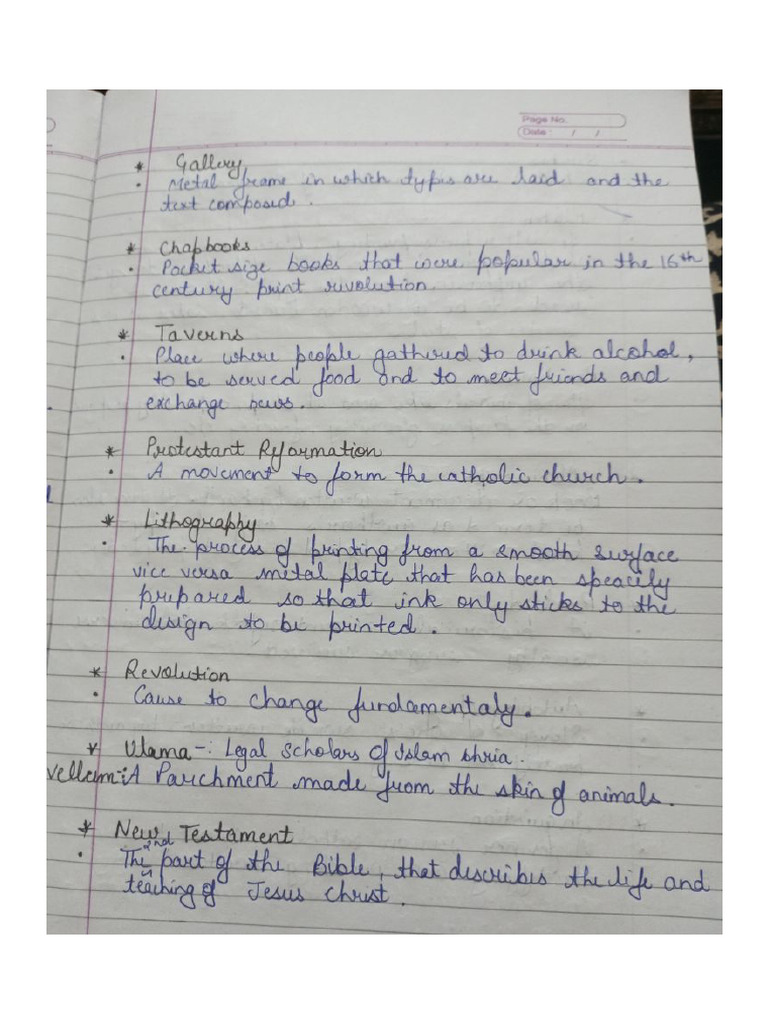 Page No.
Date: / /
* Gallery
• Metal frame in which types are laid and the
text composed.
* Chapbooks
• Pocket size books that were popular in the 16th
century print rivolution
* Taverns
• Place where people gathered to drink alcohol,
to be served food and to meet friends and
exchange news.
* Protestant Reformation
• A movement to form the catholic church.
* Lithography
• The process of printing from a smooth surface
vice versa metal plate that has been speacily
prepared so that ink only sticks to the
design to be printed.
* Revolution
• Cause to change fundamentaly.
* Ulama -: Legal scholars of Islam shria.
vellum: A Parchment made from the skin of animals.
* New Testament
• The 2nd part of the Bible, that describes the life and
teaching of Jesus Christ.